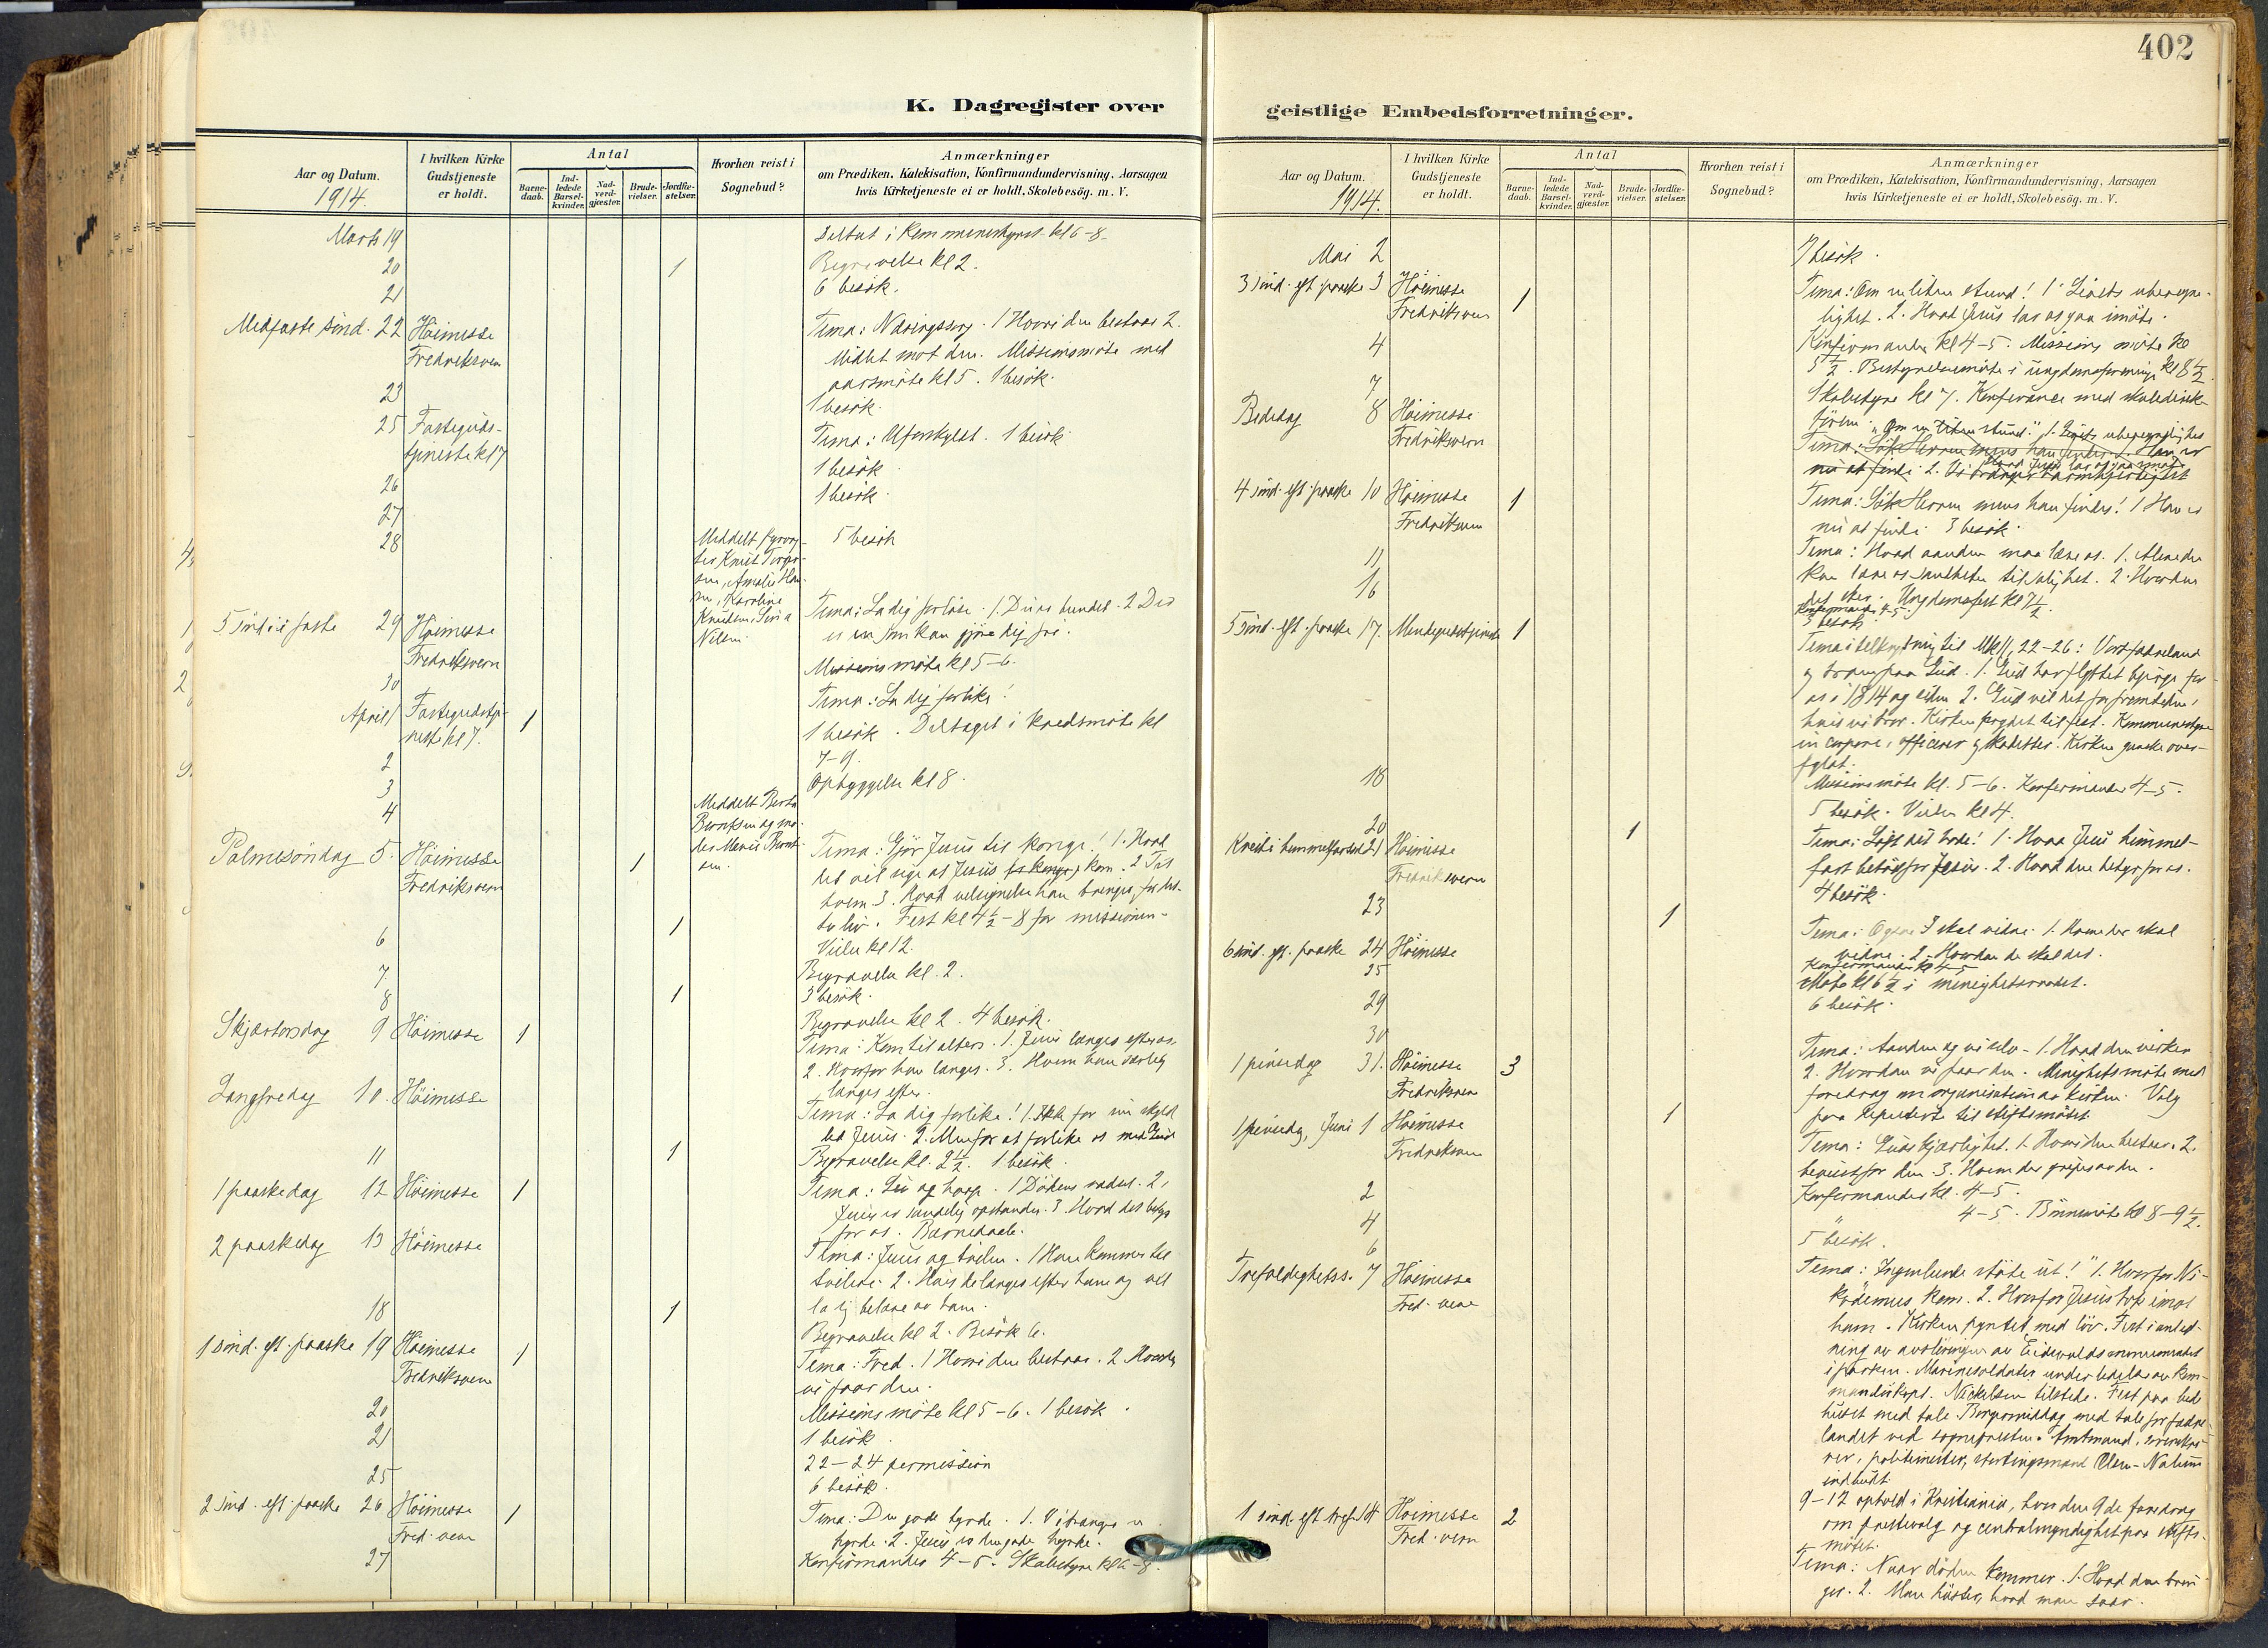 402
K. Dagregister over
Aar og Datum.
1914.
I hvilken Kirke
Gudstjeneste
er holdt.
Antal
Barne-
daab.
Ind-
ledede
Barsel-
kvinder.
Nad-
verd-
gjæster.
Brude-
vielser.
Jordfæ-
stelser.
Hvorhen reist i
Sognebud?
Anmærkninger
om Prædiken, Katekisation, Konfirmandundervisning, Aarsagen
hvis Kirketjeneste ei er holdt, Skolebesög. m. V.
Marts 19
Deltat i kommunestyret kl 6-8
20 1 Begravelse kl 2.
21 6 besök.
Midfaste sönd. 22 Höimesse
Fredriksvern
Tema: Næringssorg. 1 Hvori den bestaar 2.
Midlet mot den. Missionsmöte med
aarsmöte kl 5. 1 besök.
23 1 besök.
25 Fasteguds-
tjeneste kl 7
Tema: Uforskyldt. 1 besök
1 besök
26 1 besök.
27
28 5 besök
Knut
Amalie
Karoline
5 sönd i faste 29 Höimesse
Fredriksvern
Tema: La dig forlöse. 1. Du er bundet. 2 Der
er en som kan gjöre dig fri.
30 Missionsmöte kl 5-6.
April 1 Fastegudstje-
neste kl 7. 1
Tema: La dig forlike!
1 besök. Deltaget i kredsmöte kl
7-9.
2
3 Opbyggelse kl 8.
4 Meddelt
Palmesöndag 5. Höimesse
Fredriksvern 1
Tema: Gjör Jesus til konge! 1. Hvad
det vil sige at Jesus kom. 2 Til
hvem 3. Hvad velsignelse han bringer
Fest kl 4½-8 for missionen.
Vielse kl 12.
6 1 Begravelse kl. 2.
7 3 besök.
8 1 Begravelse kl 2. 4 besök.
Skjærtorsdag 9 Höimesse 1
Tema: Kom til alters. 1. Jesus længes efter os.
2. Hvorfor han længes. 3. Hvem han særlig
længes efter.
Langfredag 10. Höimesse
Tema: La dig forlike! 1. Ikke for sin skyld
led Jesus. 2. Men for at forlike os med Gud
11 1 Begravelse kl. 2½. 1 besök.
1 paaskedag 12 Höimesse 1
Tema: Liv og haap. 1 Dödens 2.
Jesus er opstanden. 3. Hvad det betyr
for os. Barnedaab.
2 paaskedag 13 Höimesse
Tema: Jesus og tvilen. 1 Han kommer til
tvilere. 2. Hvis de længes efter ham og vil
la sig belære av ham.
18 1 Begravelse kl 2. Besök 6.
1 sönd. eft. paaske 19 Höimesse
Fredriksvern 1
Tema: Fred. 1 Hvori den bestaar. 2 Hvorledes
vi faar den.
20 Missionsmöte kl 5-6. 1 besök.
21 1 besök.
22-24 permission
25 6 besök.
2 sönd. eft. paaske 26 Höimesse
Fred. vern 1
Tema: Den gode hyrde. 1. Vi trænger en
hyrde. 2. Jesus er den gode hyrde.
27 Konfirmander 4-5. Skolestyre kl 6-8.
geistlige Embedsforretninger.
Aar og Datum.
1914.
I hvilken Kirke
Gudstjeneste
er holdt.
Antal
Barne-
daab.
Ind-
ledede
Barsel-
kvinder.
Nad-
verd-
gjæster.
Brude-
vielser.
Jordfæ-
stelser.
Hvorhen reist i
Sognebud?
Anmærkninger
om Prædiken, Katekisation, Konfirmandundervisning, Aarsagen
hvis Kirketjeneste ei er holdt, Skolebesög. m. V.
Mai 2 7 besök.
3 sönd. eft. paaske 3 Höimesse
Fredriksvern 1
Tema: Om en liten stund! 1. Livets uberegne-
lighet. 2. Hvad Jesus lar os gaa imöte.
4 Konfirmander kl 4-5. Missionsmöte kl
5½. Bestyrelsesmöte i ungdomsforening kl 8½.
7 Skolestyre kl 7. Konferance med skoledirek-
tören.
Bededag 8 Höimesse
Fredriksvern
4 sönd. eft. paaske 10 Höimesse
Fredriksvern 1
Tema: Sök Herren mens han findes! 1 Han er
nu at finde 3 besök.
Tema: Hvad aanden maa lære os. 1. Alene den
kan lære os sandheten til salighet. 2. Hvordan
det sker. Ungdomsfest kl 7½.
11 Konfirmander 4-5.
16 3 besök
5 sönd. eft. paaske 17. 1
Tema i tilknytning til Mk 11, 22-26: Vort fædreland
og troen paa Gud. 1. Gud har flyttet bjerge for
os i 1814 og siden 2. Gud vil det for fremtiden,
hvis vi tror. Kirken pyntet til fest. Kommunestyre
in corpore, officerer og kadetter. Kirken ganske over-
fyldt.
18 Missionsmöte kl. 5-6. Konfirmander 4-5.
20 1 5 besök. Vielse kl 4.
Kristi himmelfartsd 21 Höimesse
Fredriksvern
Tema: Löft dit hode! 1. Hvad Jesu himmel-
fart betydr for Jesus. 2. Hvad den betyr for os.
23 1 4 besök.
6 sönd. eft. paaske 24 Höimesse
Tema: Ogsaa I skal vidne. 1. Hvem der skal
vidne. 2. Hvordan de skal det.
25 Konfirmander kl 4-5
Möte kl 6½ i menighetsraadet.
29 6 besök.
30
1 pinsedag 31. Höimesse
Fredriksvern 3
Tema: Aanden og vi selv - 1. Hvad den virker
2. Hvordan vi faar den. Menighetsmöte med
foredrag om organisation av kirken. Valg
paa reputerte til stiftsmötet.
1 pinsedag, Juni 1 Höimesse
Fredriksvern 1
Tema: Guds kjærlighet. 1. Hvori den bestaar. 2.
beviset for den. 3. Hvem der gripes av den.
2 Konfirmander kl. 4-5.
4 " 4-5. Bönnemöte kl 8-9½.
6 5 besök.
Trefoldighetss. 7 Höimesse
Fred. vern
Tema: Ingenlunde støte ut! 1. Hvorfor Ni-
kodemus kom. 2. Hvorfor Jesus tok imot
ham. Kirken pyntet med löv. Fest i anled-
ning av avslöringen av Eidsvolds
i parken. Marinesoldater under ledelse av kom-
mandörkapt. Nickelsen tilstede. Fest paa bede-
huset med tale. Borgermiddag med tale for fædre-
landet ved sognepresten. Amtmand,
politimester, stortingsmand Olsen-Nalum
indbudt.
9-12 ophold i Kristiania, hvor den 9de foredrag
om prestevalg og centralmyndighet paa stifts-
mötet.
1 sönd. eft. tref. 14 Höimesse
Fred. vern 2
Tema: Naar döden kommer. 1. Hvad den brin-
ger. 2. Man höster, hvad man saar.